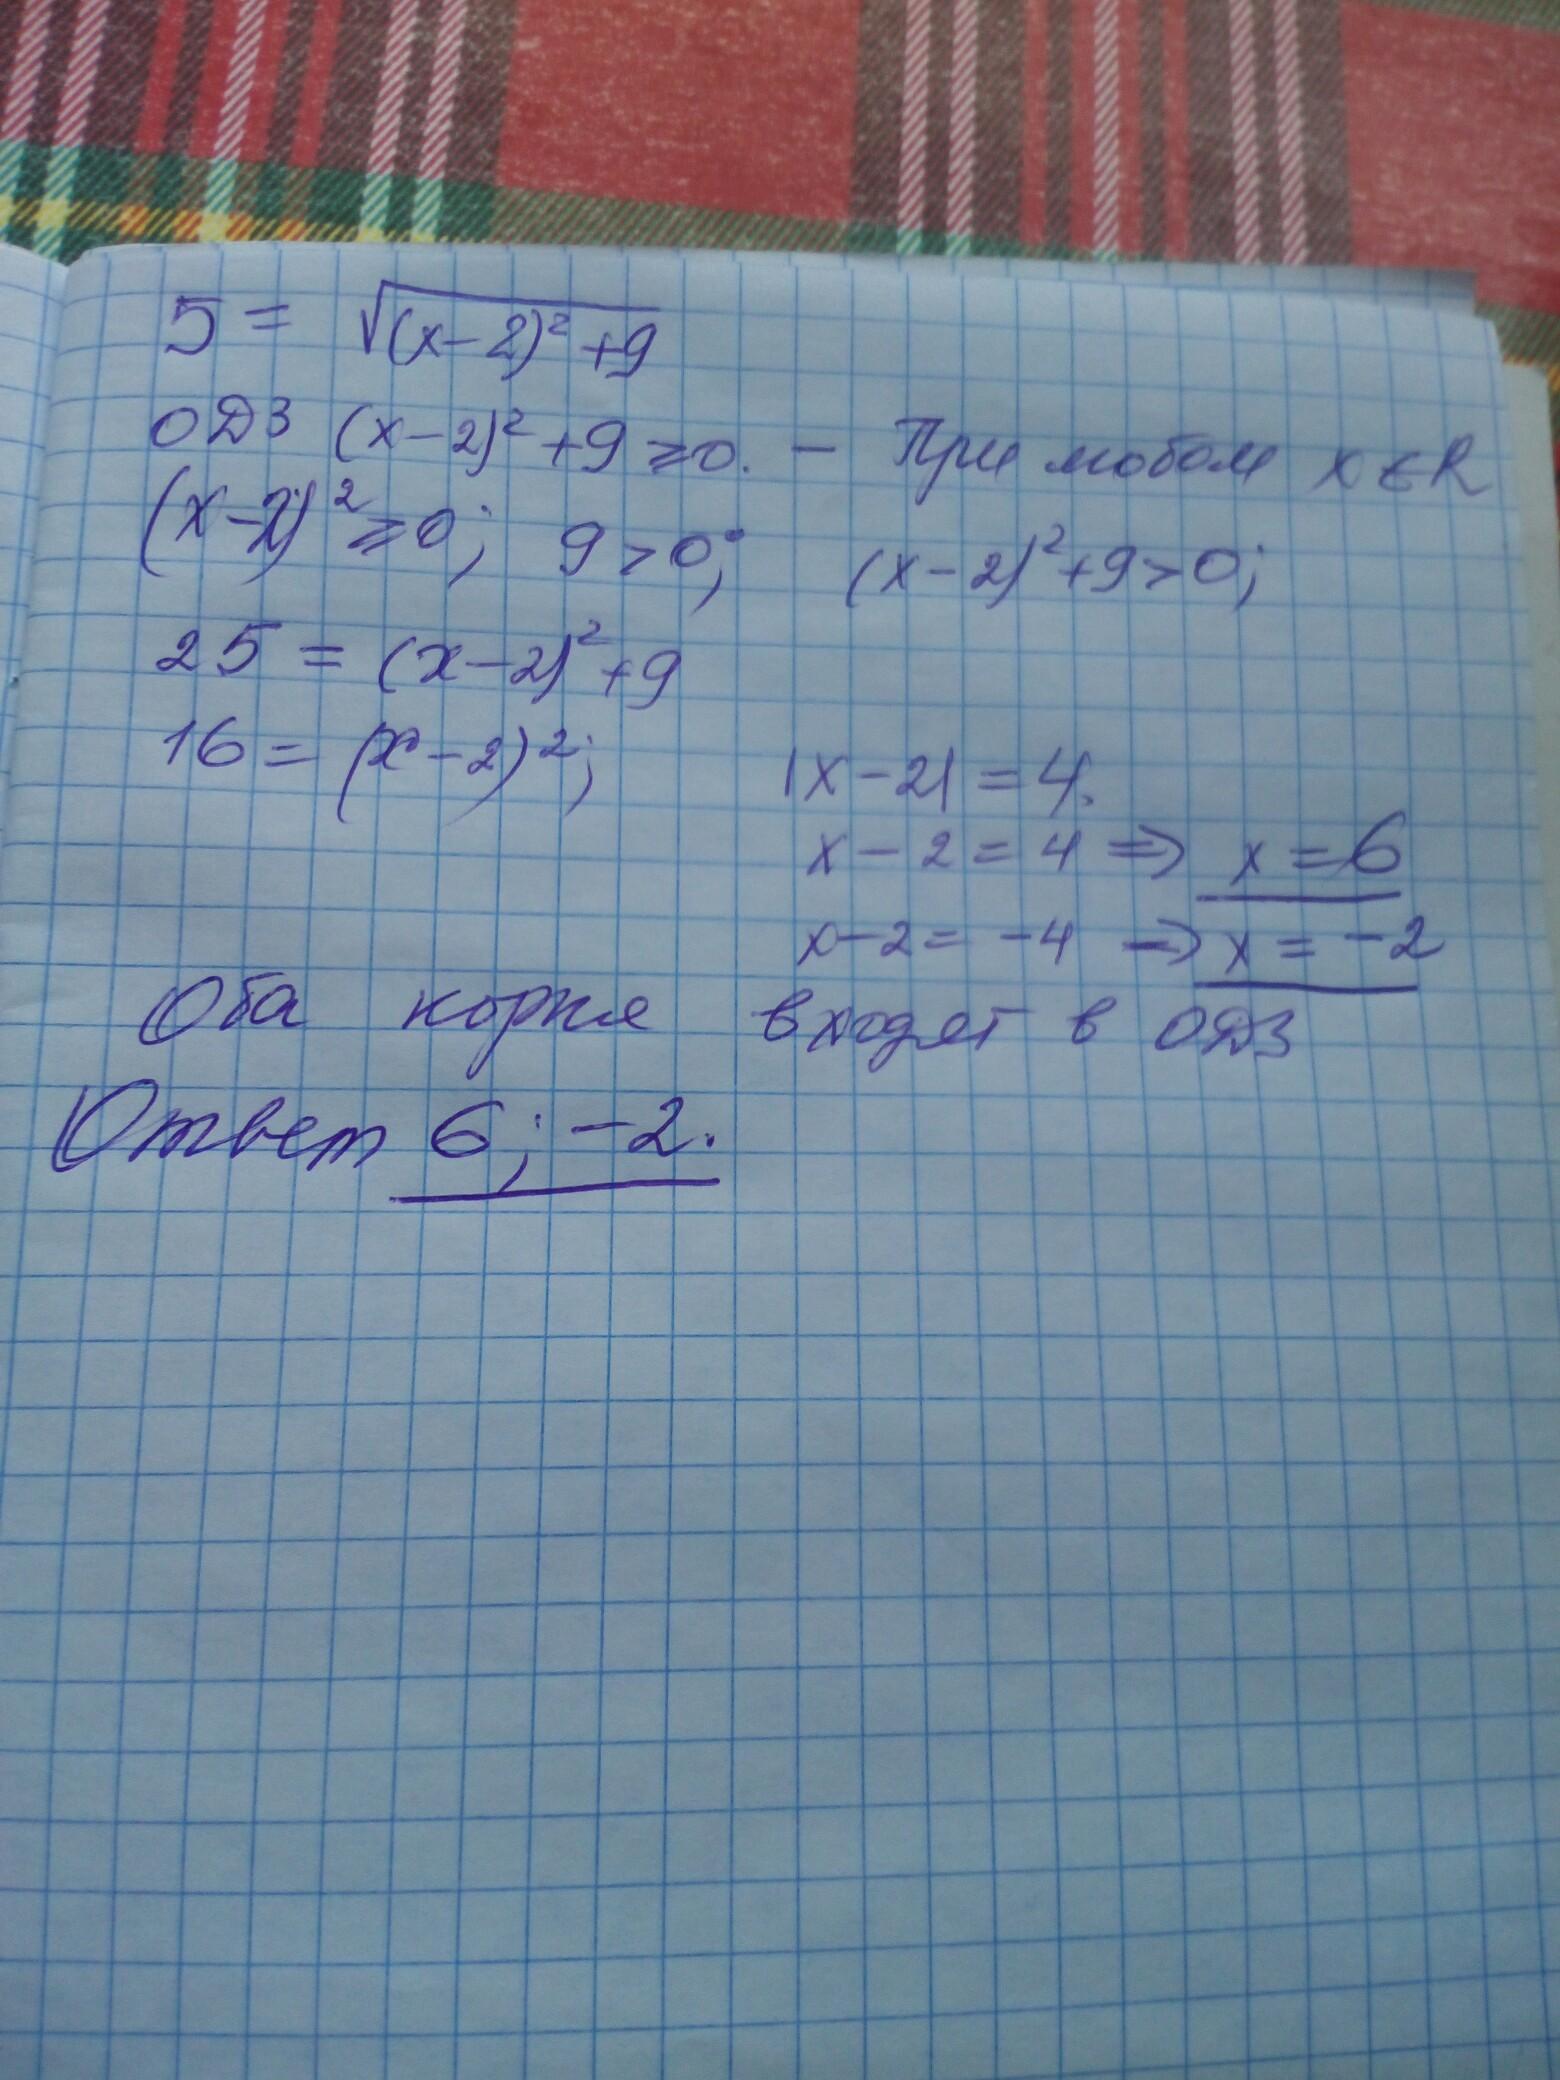 5 = √((x-2)² + 9)
ОДЗ (x-2)² + 9 ⩾ 0. — При любом x ∈ R
(x-2)² ⩾ 0; 9 > 0; (x-2)² + 9 > 0;
25 = (x-2)² + 9
16 = (x-2)²; |x-2| = 4.
x - 2 = 4 => x = 6
x - 2 = -4 => x = -2
Оба корня входят в ОДЗ
Ответ 6; -2.